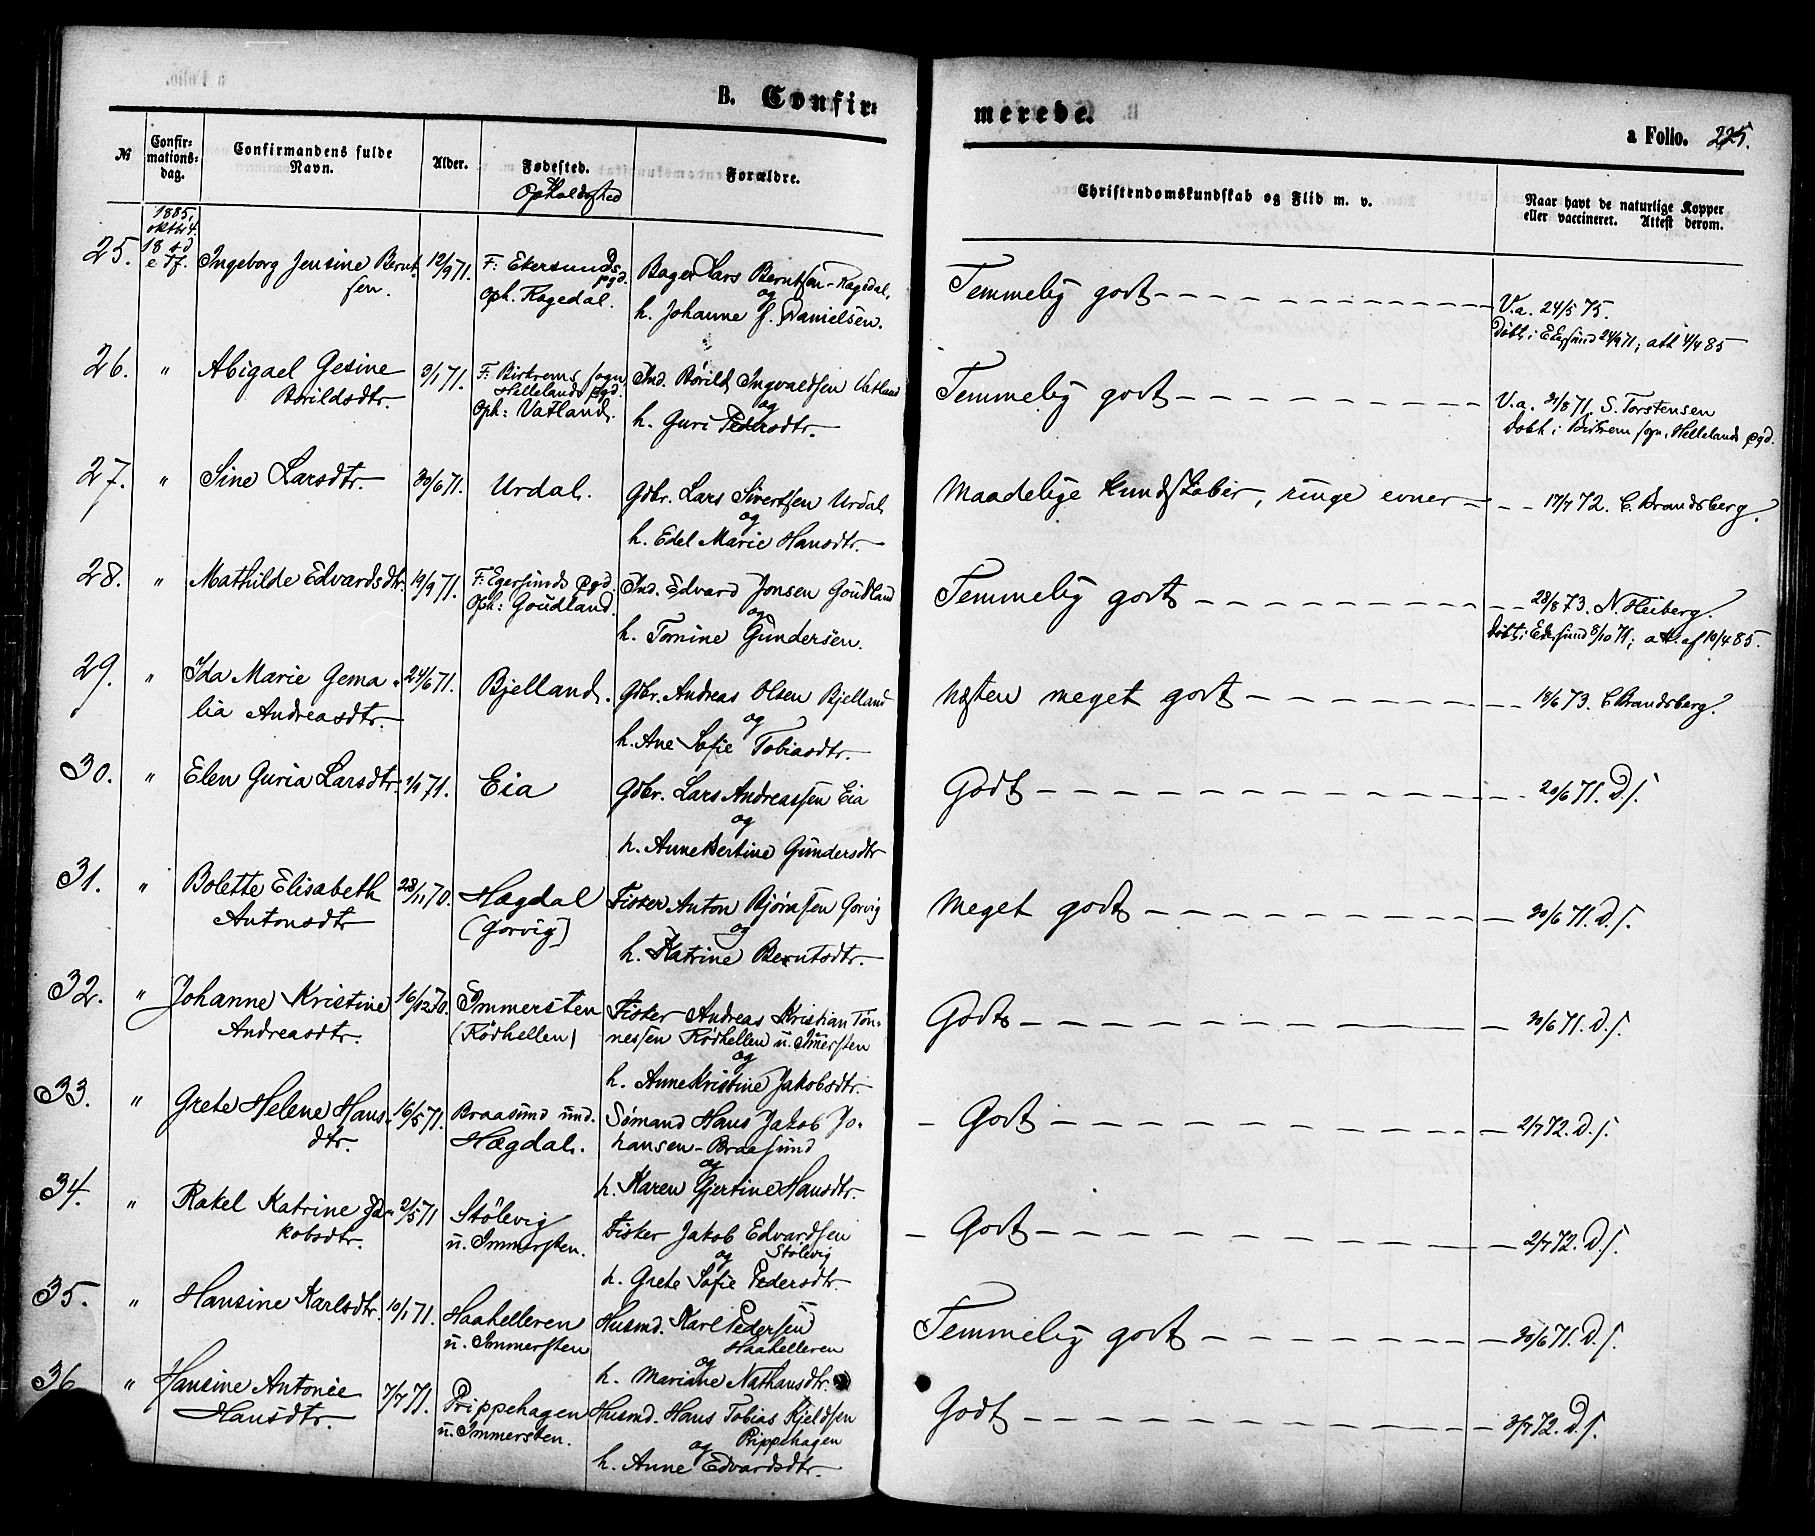 B. Confir-
merede.
a Folio. 225.
№
Confir-
mations-
dag.
Confirmandens fulde
Navn.
Alder.
Fødested.
Opholdssted
Forældre.
Christendomskundskab og Flid m. v.
Naar havt de naturlige Kopper
eller vaccineret. Attest derom.
1885,
oktbr 4.
18 sd
e Tf.
25. Ingeborg Jensine Bernt-
sen.
12/9 71.
F: Ekersunds
pgd.
Oph. Ragedal.
Bager Lars Berntsen - Ragedal,
og
h. Johanne f. Danielsen.
Temmelig godt
V.a. 24/5 75.
Døbt i Ekersund 24/9 71; att 1/4 85
26. " Abigael Gesine
Borildsdtr.
3/1 71.
F: Birkrems sogn,
Hellelands pgd.
Oph: Vatland.
Ind. Børild Ingvaldsen Vatland
og
h. Guri Pedersdtr.
Temmelig godt
V.a. 31/8 71, S. Torstensen
Døbt i Birkrem sogn, Hellelands pgd.
27. " Sine Larsdtr.
30/6 71.
Urdal.
Gdbr. Lars Sivertsen Urdal
og
h. Edel Marie Hansdtr.
Maadelige kundskaber, ringe evner
17/7 72. C. Brandsberg.
28. " Mathilde Edvardsdtr.
19/9 71.
F: Egersunds pgd.
Oph: Goudland.
Ind. Edvard Jonsen Goudland
og
h. Tonine Gundersen.
Temmelig godt
28/8 73. N. Heiberg.
Døbt i Ekersund 8/10 71; att. af 10/4 85.
29. " Ida Marie Gema-
lia Andreasdtr.
24/6 71.
Bjelland.
Gdbr. Andreas Olsen Bjelland
og
h. Ane Sofie Tobiasdtr.
Næsten meget godt
18/6 73. C Brandsberg.
30. " Elen Guria Larsdtr.
1/1 71.
Eia
Gdbr. Lars Andreassen Eia
og
h. Anne Bertine Gundersdtr
Godt
20/6 71. D.s.
31. " Bolette Elisabeth
Antonsdtr
28/11 70.
Hægdal
(Gorvig)
Fisker Anton Bjørnsen Gorvig
og
h. Katrine Berntsdtr.
Meget godt
30/6 71. D.s.
32. " Johanne Kristine
Andreasdtr.
16/12 70.
Immersten
(Rødhellen)
Fisker Andreas Kristian Tøn-
nessen Rødhellen u. Immersten
og
h. Anne Kristine Jakobsdtr.
Godt
30/6 71. D.s.
33. " Grete Helene Hans-
dtr.
16/5 71.
Braasund und.
Hægdal.
Sømand Hans Jakob Jo-
hansen - Braasund
og
h. Karen Gjertine Hansdtr.
Godt
2/7 72. D.s.
34. " Rakel Katrine Ja-
kobsdtr.
2/5 71
Stølevig
u. Immersten.
Fisker Jakob Edvardsen
og Stølevig
h. Grete Sofie Pedersdtr.
Godt
2/7 72. D.s.
35. " Hansine Karlsdtr.
10/1 71.
Haahelleren
u. Immersten
Husmd. Karl Pedersen
Haahelleren
og
h. Mariane Nathansdtr.
Temmelig godt
30/6 71. D.s.
36 " Hansine Antonie
Hansdtr.
7/7 71.
Prippehagen
u. Immersten.
Husmd. Hans Tobias Kjeldsen
og Prippehagen
h. Anne Edvardsdtr.
Godt
3/7 72. D.s.